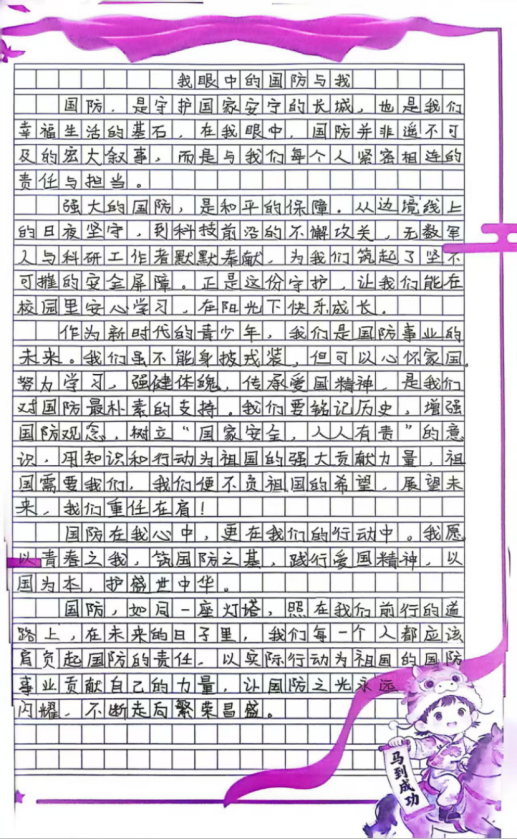 我眼中的国防与我
国防，是守护国家安宁的长城，也是我们
幸福生活的基石，在我眼中，国防并非遥不可
及的宏大叙事，而是与我们每个人紧密相连的
责任与担当。
强大的国防，是和平的保障。从边境线上
的日夜坚守，到科技前沿的不懈攻关，无数军
人与科研工作者默默奉献，为我们筑起了坚不
可摧的安全屏障。正是这份守护，让我们能在
校园里安心学习，在阳光下快乐成长。
作为新时代的青少年，我们是国防事业的
未来。我们虽不能身披戎装，但可以心怀家国，
努力学习，强健体魄，传承爱国精神，是我们
对国防最朴素的支持。我们要铭记历史，增强
国防观念，树立“国家安全，人人有责”的意
识，用知识和行动为祖国的强大贡献力量，祖
国需要我们，我们便不负祖国的希望，展望未
来，我们重任在肩！
国防在我心中，更在我们的行动中。我愿
以青春之我，筑国防之基，践行爱国精神，以
国为本，护盛世中华。
国防，如同一座灯塔，照在我们前行的道
路上，在未来的日子里，我们每一个人都应该
肩负起国防的责任，以实际行动为祖国的国防
事业贡献自己的力量，让国防之光永远
闪耀，不断走向繁荣昌盛。
马到成功